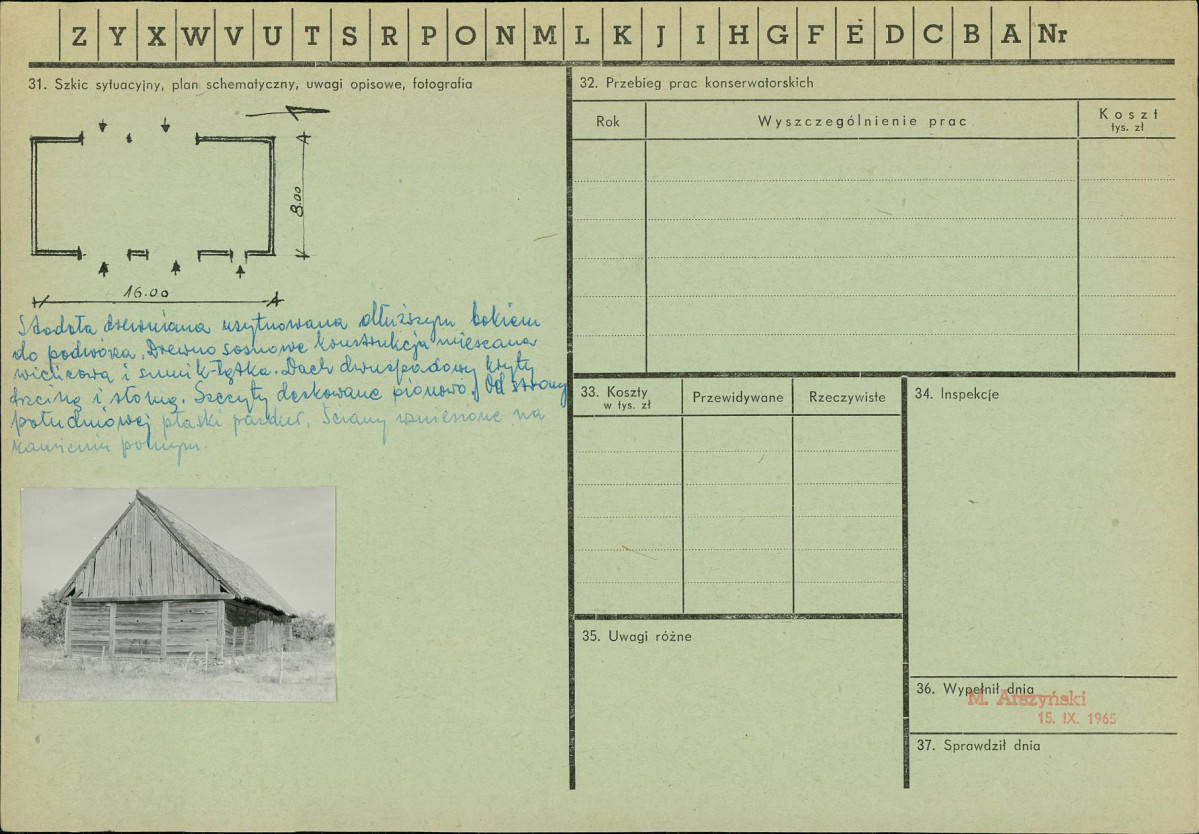 Z Y X W V U T S R P O N M L K J I H G F E D C B A Nr
31. Szkic sytuacyjny, plan schematyczny, uwagi opisowe, fotografia
8.00
16.00
Stodoła drewniana usytuowana dłuższym bokiem
do podwórza. Drewno sosnowe konstrukcja mieszana
wieńcowa i sumik-łątka. Dach dwuspadowy kryty
trzciną i słomą. Szczyty deskowane pionowo. Od strony
południowej płaski parkur. Ściany wzniesione na
kamieniu polnym.
32. Przebieg prac konserwatorskich
Rok
Wyszczególnienie prac
Koszt
tys. zł
33. Koszty
w tys. zł
Przewidywane
Rzeczywiste
34. Inspekcje
35. Uwagi różne
36. Wypełnił dnia
M. Arszyński
15. IX. 1965
37. Sprawdził dnia